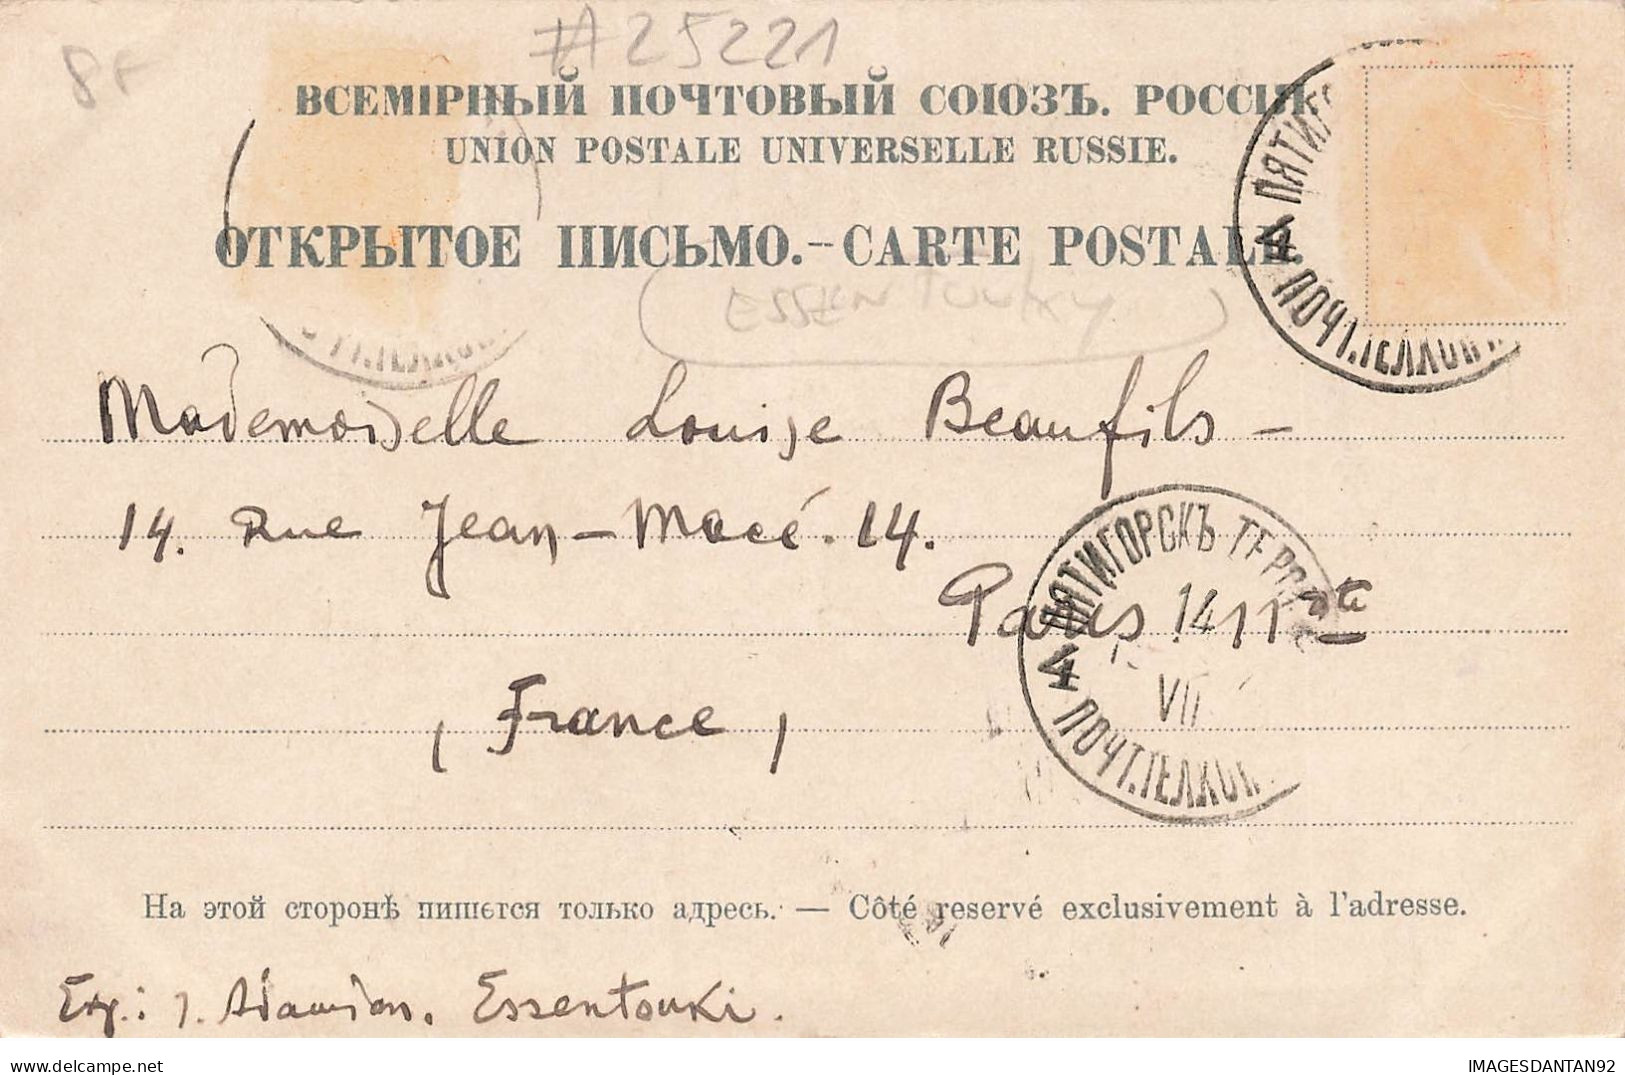 8F
#25221
ВСЕМІРНЫЙ ПОЧТОВЫЙ СОЮЗЪ. РОССІЯ
UNION POSTALE UNIVERSELLE RUSSIE.
ОТКРЫТОЕ ПИСЬМО.–CARTE POSTALE.
(ESSENTOUKY)
Mademoiselle Louise Beaufils –
14. Rue Jean-Macé. 14.
Paris 11
(France)
ПЯТИГОРСКЪ
14
VII
4 ПОЧТ.ТЕЛ.КОН
На этой сторонѣ пишется только адресъ. — Côté reservé exclusivement à l'adresse.
Exp: J. Adamian. Essentouki.
IMAGESDANTAN92